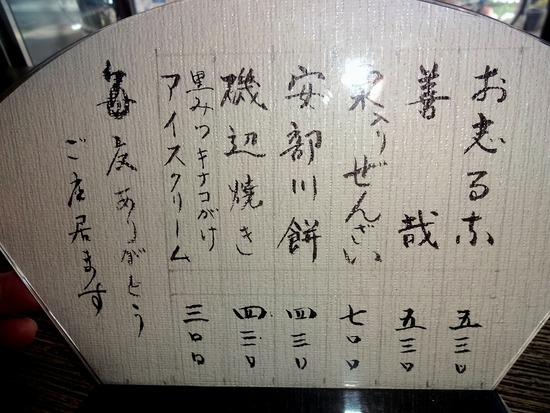 お志る古 五三〇
善哉 五三〇
栗入りぜんざい 七〇〇
安部川餅 四三〇
磯辺焼き 四三〇
黒みつキナコがけ
アイスクリーム 三〇〇
毎度ありがとう
ご店居ます